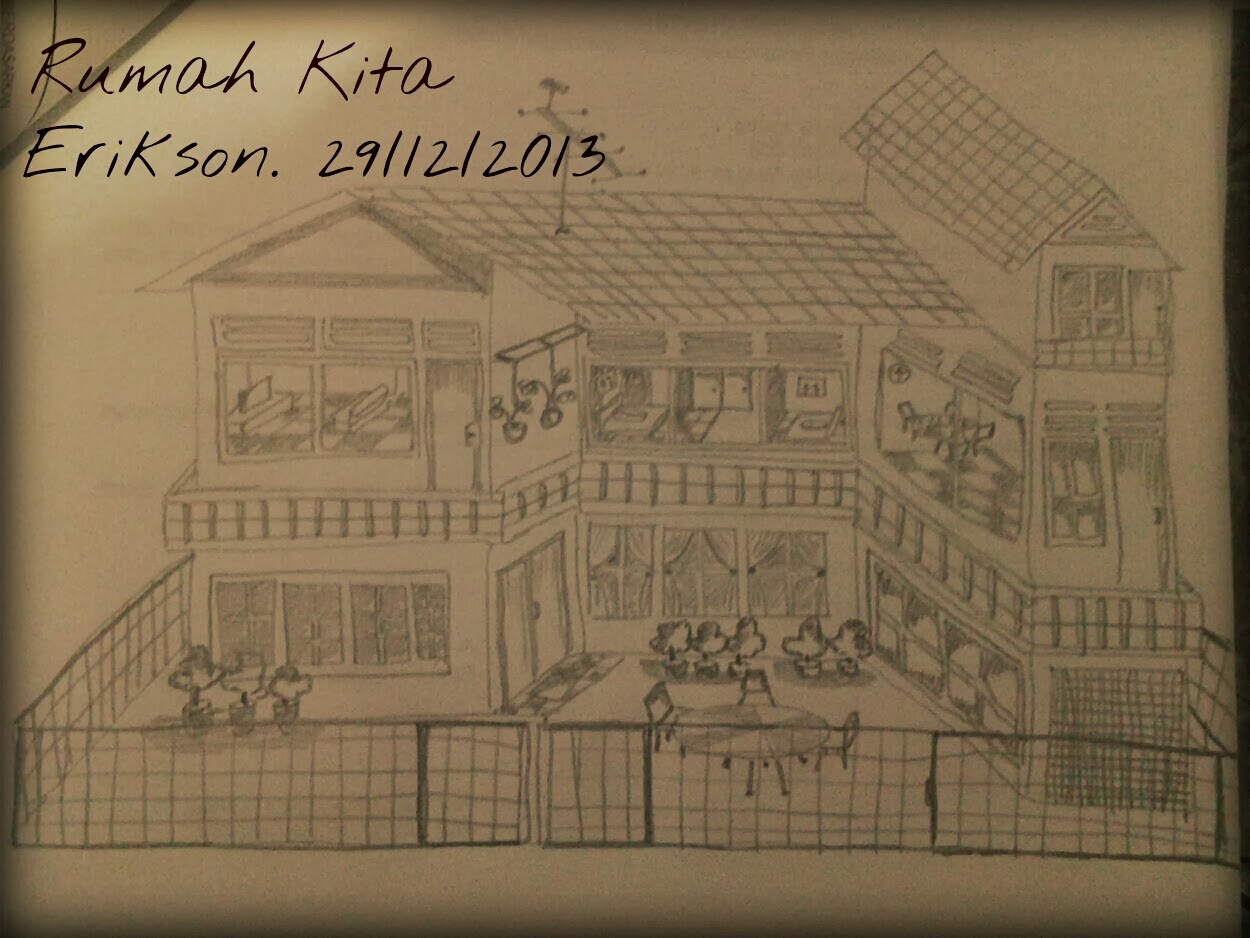 Rumah Kita
Erikson. 29/12/2013